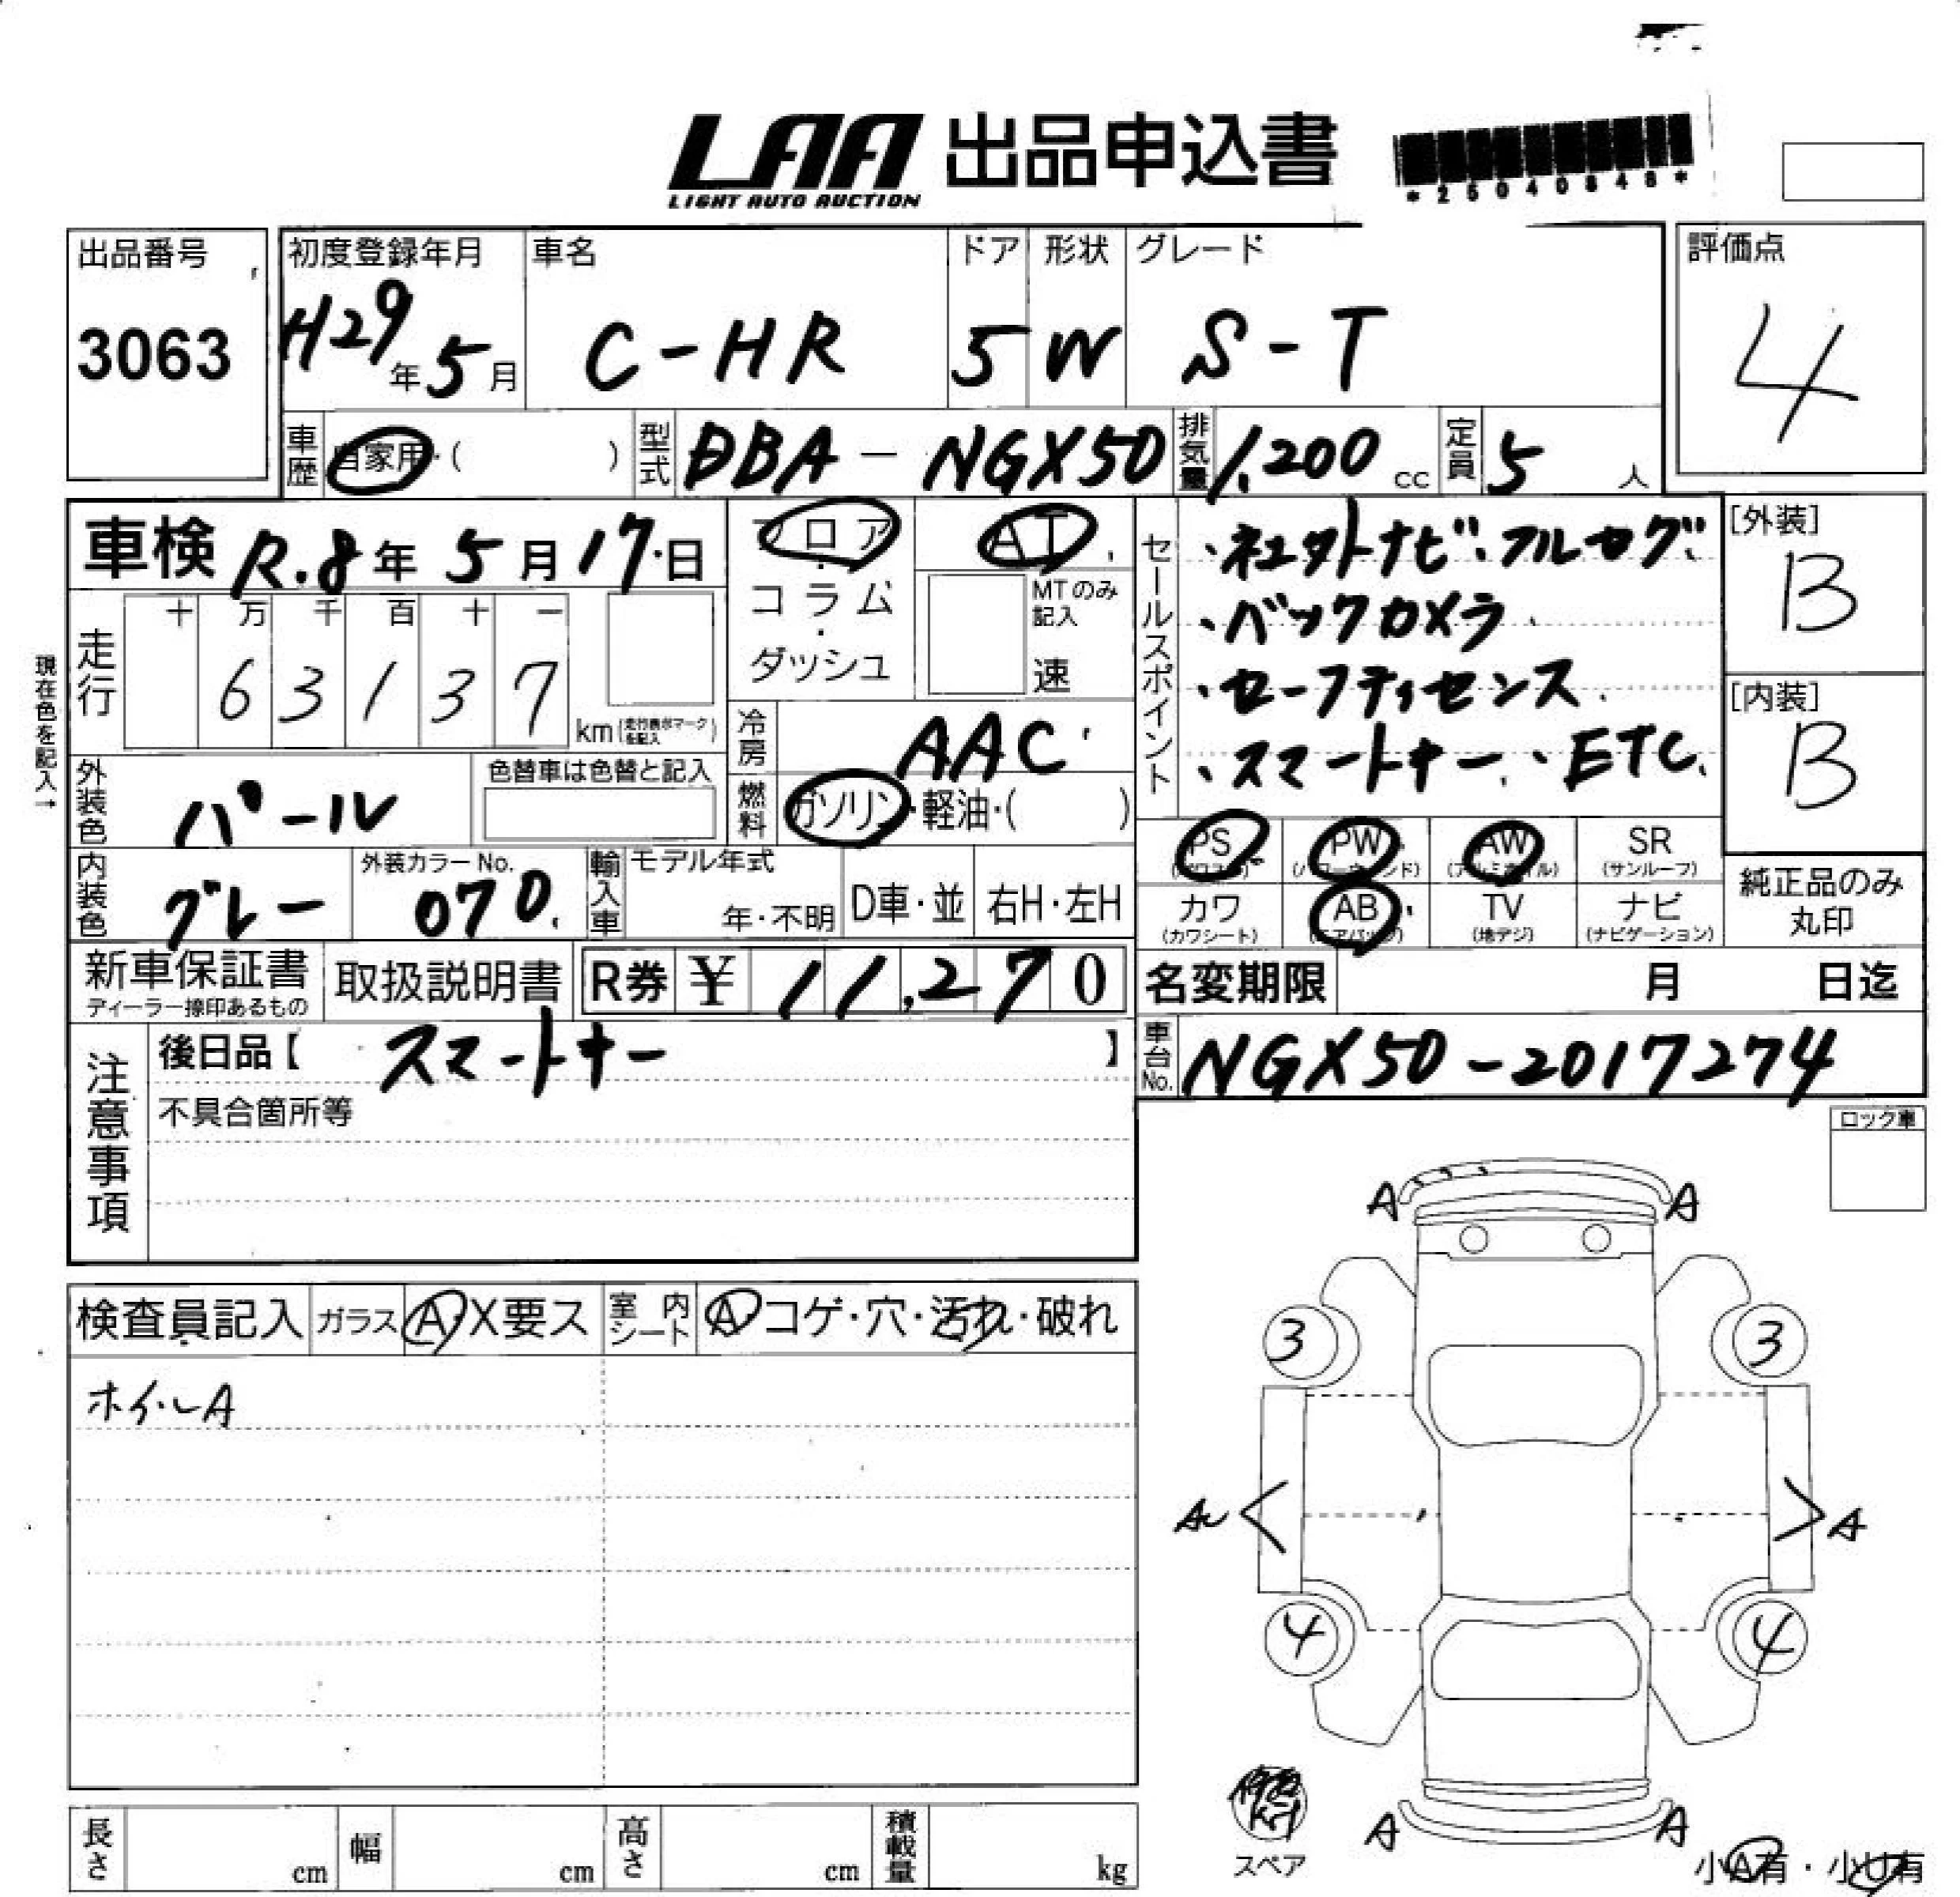 LAA 出品申込書
LIGHT AUTO AUCTION
*25040846*
出品番号
3063
初度登録年月
H29年5月
車名
C-HR
ドア
5
形状
W
グレード
S-T
評価点
4
車歴 自家用・( )
型式 DBA-NGX50
排気量 1,200 cc
定員 5 人
車検 R.8年5月17日
フロア・コラム・ダッシュ
AT
MTのみ記入
速
セールスポイント
・ネエクトナビ・フルセグ
・バックカメラ
・セーフティセンス
・スマートキー、・ETC
[外装]
B
[内装]
B
現在色を記入→
走行
十 万 千 百 十 一
6 3 1 3 7
km (走行表示マークを記入)
冷房 AAC
燃料 ガソリン・軽油・( )
外装色 パール
色替車は色替と記入
内装色 グレー
外装カラーNo.
070
輸入車
モデル年式
年・不明
D車・並
右H・左H
PS
(パワステ)
PW
(パワーウィンド)
AW
(アルミホイル)
SR
(サンルーフ)
カワ
(カワシート)
AB
(エアバッグ)
TV
(地デジ)
ナビ
(ナビゲーション)
純正品のみ
丸印
新車保証書
ディーラー捺印あるもの
取扱説明書
R券 ¥ 11,270
名変期限 月 日迄
車台No. NGX50-2017274
注意事項
後日品【 スマートキー 】
不具合箇所等
ロック車
検査員記入
ガラス A・X要ス
室内シート A・コゲ・穴・汚れ・破れ
ホイルA
A A
3 3
A
4 4
A A
スペア
小A有・小U有
長さ cm
幅 cm
高さ cm
積載量 kg